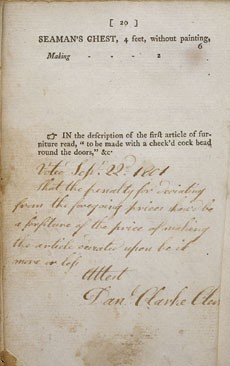 [ 20 ]
SEAMAN'S CHEST, 4 feet, without painting,
6
Making - - - 2
☞ IN the deſcription of the firſt article of fur-
niture read, "to be made with a check'd cock bead
round the doors," &c.
Voted Sepr. 22d. 1801
That the penalty for deviating
from the foregoing prices shall be
a forfeiture of the price of making
the article worked upon be it
more or less
Attest
Danl. Clarke Cler